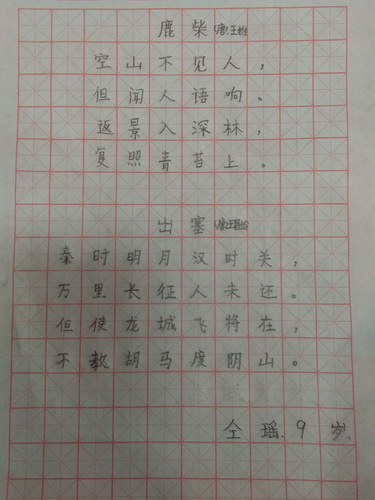 鹿柴(唐.王维)
空山不见人，
但闻人语响。
返景入深林，
复照青苔上。
出塞(唐.王昌龄)
秦时明月汉时关，
万里长征人未还。
但使龙城飞将在，
不教胡马度阴山。
仝瑶.9岁.